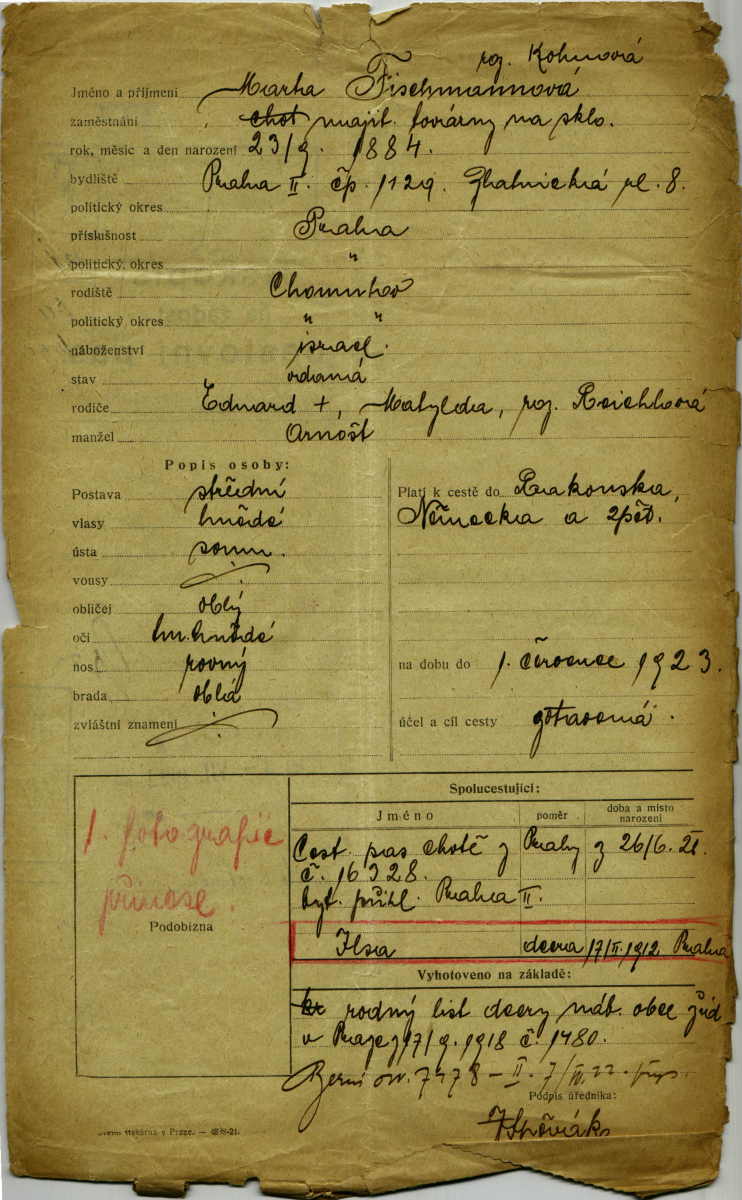 roz. Kohnová
Jméno a příjmení Marta Fischmannová
zaměstnání choť majit. továrny na sklo.
rok, měsíc a den narození 23/9. 1884.
bydliště Praha II. čp. 1129. Zlatnická ul. 8.
politický okres
příslušnost Praha
politický okres "
rodiště Chomutov
politický okres " "
náboženství israel.
stav vdaná
rodiče Eduard +, Matylda, roz. Reichlová
manžel Arnošt
Popis osoby:
Postava střední
vlasy hnědé
ústa soum.
vousy
obličej oblý
oči tm. hnědé
nos rovný
brada oblá
zvláštní znamení
Platí k cestě do Rakouska,
Německa a zpět.
na dobu do 1. července 1923.
účel a cíl cesty
Spolucestující:
Jméno poměr doba a místo narození
Cest. pas chotě z Prahy z 26/6. 21.
č. 16328.
byt. přihl. Praha II.
Ilsa dcera 17/II. 1912 Praha
1. fotografie
přinese.
Podobizna
Vyhotoveno na základě:
rodný list dcery náb. obce žid.
v Praze z 17/9. 1918 č. 1480.
Berní 7478 – II. 7/IV. 22.
Podpis úředníka:
tiskárna v Praze. —